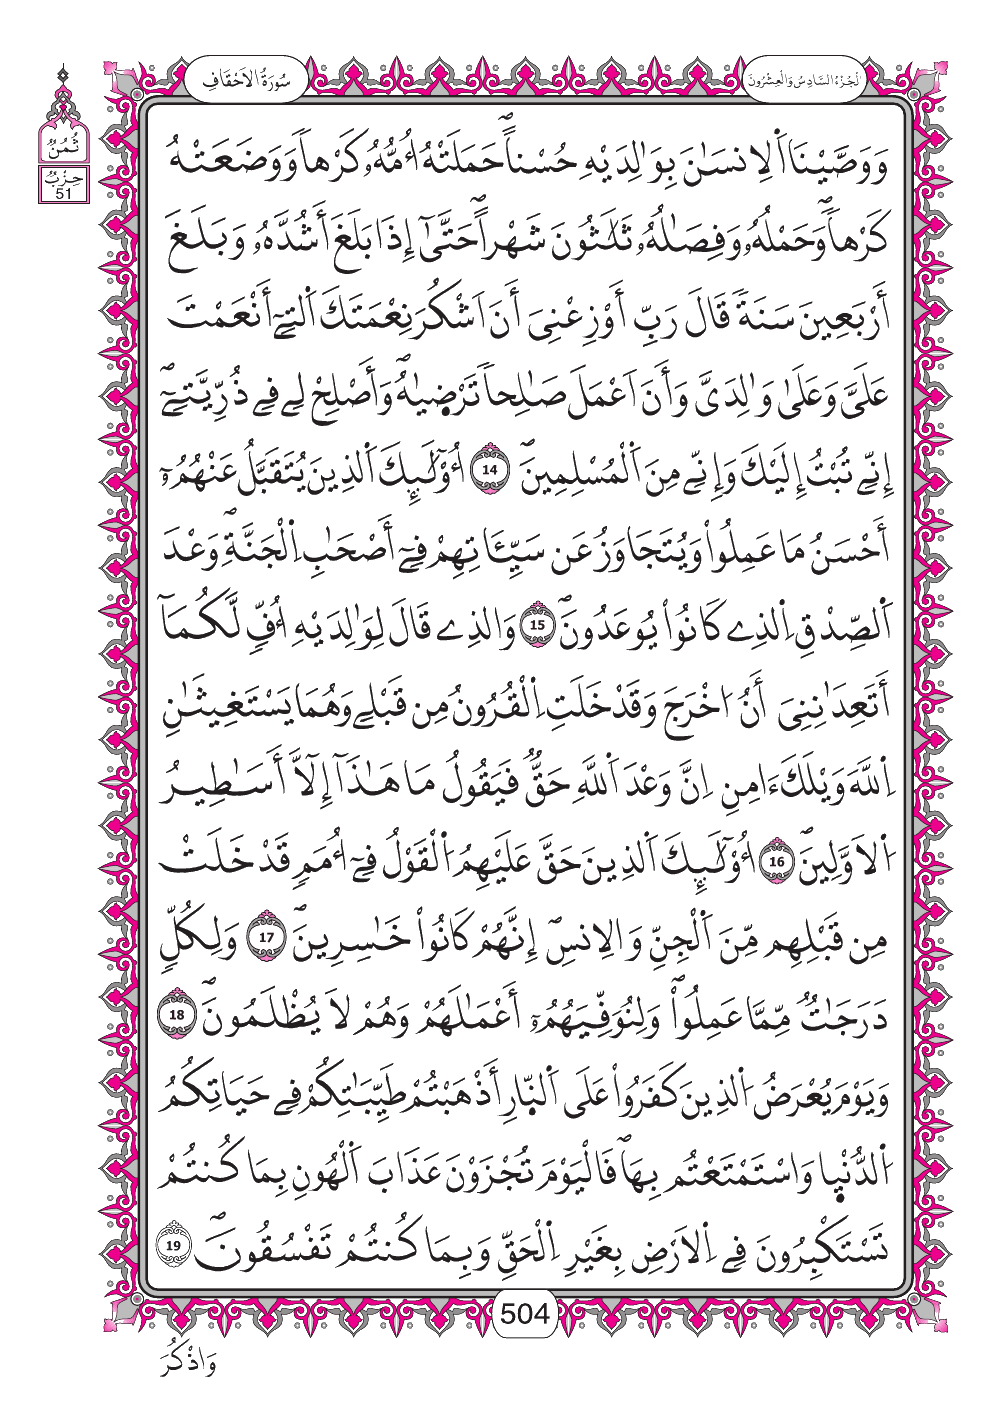 سُورَةُ الاَحْقَافِ
الْجُزْءُ السَّادِسُ وَالْعِشْرُونَ
ثُمُنُ
حِزْبُ
51
وَوَصَّيْنَا اَ۬لِانسَٰنَ بِوَٰلِدَيْهِ حُسْناًۖ حَمَلَتْهُ أُمُّهُۥ كَرْهاٗ وَوَضَعَتْهُ
كَرْهاٗۖ وَحَمْلُهُۥ وَفِصَٰلُهُۥ ثَلَٰثُونَ شَهْراًۖ حَتَّىٰٓ إِذَا بَلَغَ أَشُدَّهُۥ وَبَلَغَ
أَرْبَعِينَ سَنَةٗ قَالَ رَبِّ أَوْزِعْنِيَ أَنَ اَشْكُرَ نِعْمَتَكَ اَ۬لتِےٓ أَنْعَمْتَ
عَلَيَّ وَعَلَىٰ وَٰلِدَيَّ وَأَنَ اَعْمَلَ صَٰلِحاٗ تَرْضِيٰهُۖ وَأَصْلِحْ لِے فِے ذُرِّيَّتِيَۖ
إِنِّے تُبْتُ إِلَيْكَ وَإِنِّے مِنَ اَ۬لْمُسْلِمِينَۖ 14 أُوْلَٰٓئِكَ اَ۬لذِينَ يُتَقَبَّلُ عَنْهُمُۥٓ
أَحْسَنُ مَا عَمِلُواْ وَيُتَجَاوَزُ عَن سَيِّـَٔاتِهِمْ فِےٓ أَصْحَٰبِ اِ۬لْجَنَّةِۖ وَعْدَ
اَ۬لصِّدْقِ اِ۬لذِے كَانُواْ يُوعَدُونَۖ 15 وَالذِے قَالَ لِوَٰلِدَيْهِ أُفّٖ لَّكُمَآ
أَتَعِدَٰنِنِيَ أَنُ ا۟خْرَجَ وَقَدْ خَلَتِ اِ۬لْقُرُونُ مِن قَبْلِے وَهُمَا يَسْتَغِيثَٰنِ
اِ۬للَّهَ وَيْلَكَ ءَامِنِ اِنَّ وَعْدَ اَ۬للَّهِ حَقّٞ فَيَقُولُ مَا هَٰذَآ إِلَّآ أَسَٰطِيرُ
اُ۬لَاوَّلِينَۖ 16 أُوْلَٰٓئِكَ اَ۬لذِينَ حَقَّ عَلَيْهِمُ اُ۬لْقَوْلُ فِےٓ أُمَمٖ قَدْ خَلَتْ
مِن قَبْلِهِم مِّنَ اَ۬لْجِنِّ وَالِانسِۖ إِنَّهُمْ كَانُواْ خَٰسِرِينَۖ 17 وَلِكُلّٖ
دَرَجَٰتٞ مِّمَّا عَمِلُواْۖ وَلِنُوَفِّيَهُمُۥٓ أَعْمَٰلَهُمْ وَهُمْ لَا يُظْلَمُونَۖ 18
وَيَوْمَ يُعْرَضُ اُ۬لذِينَ كَفَرُواْ عَلَى اَ۬لنّ۪ارِ أَذْهَبْتُمْ طَيِّبَٰتِكُمْ فِے حَيَاتِكُمُ
اُ۬لدُّنْي۪ا وَاسْتَمْتَعْتُم بِهَاۖ فَالْيَوْمَ تُجْزَوْنَ عَذَابَ اَ۬لْهُونِ بِمَا كُنتُمْ
تَسْتَكْبِرُونَ فِے اِ۬لَارْضِ بِغَيْرِ اِ۬لْحَقِّ وَبِمَا كُنتُمْ تَفْسُقُونَۖ 19
504
وَاذْكُرَ